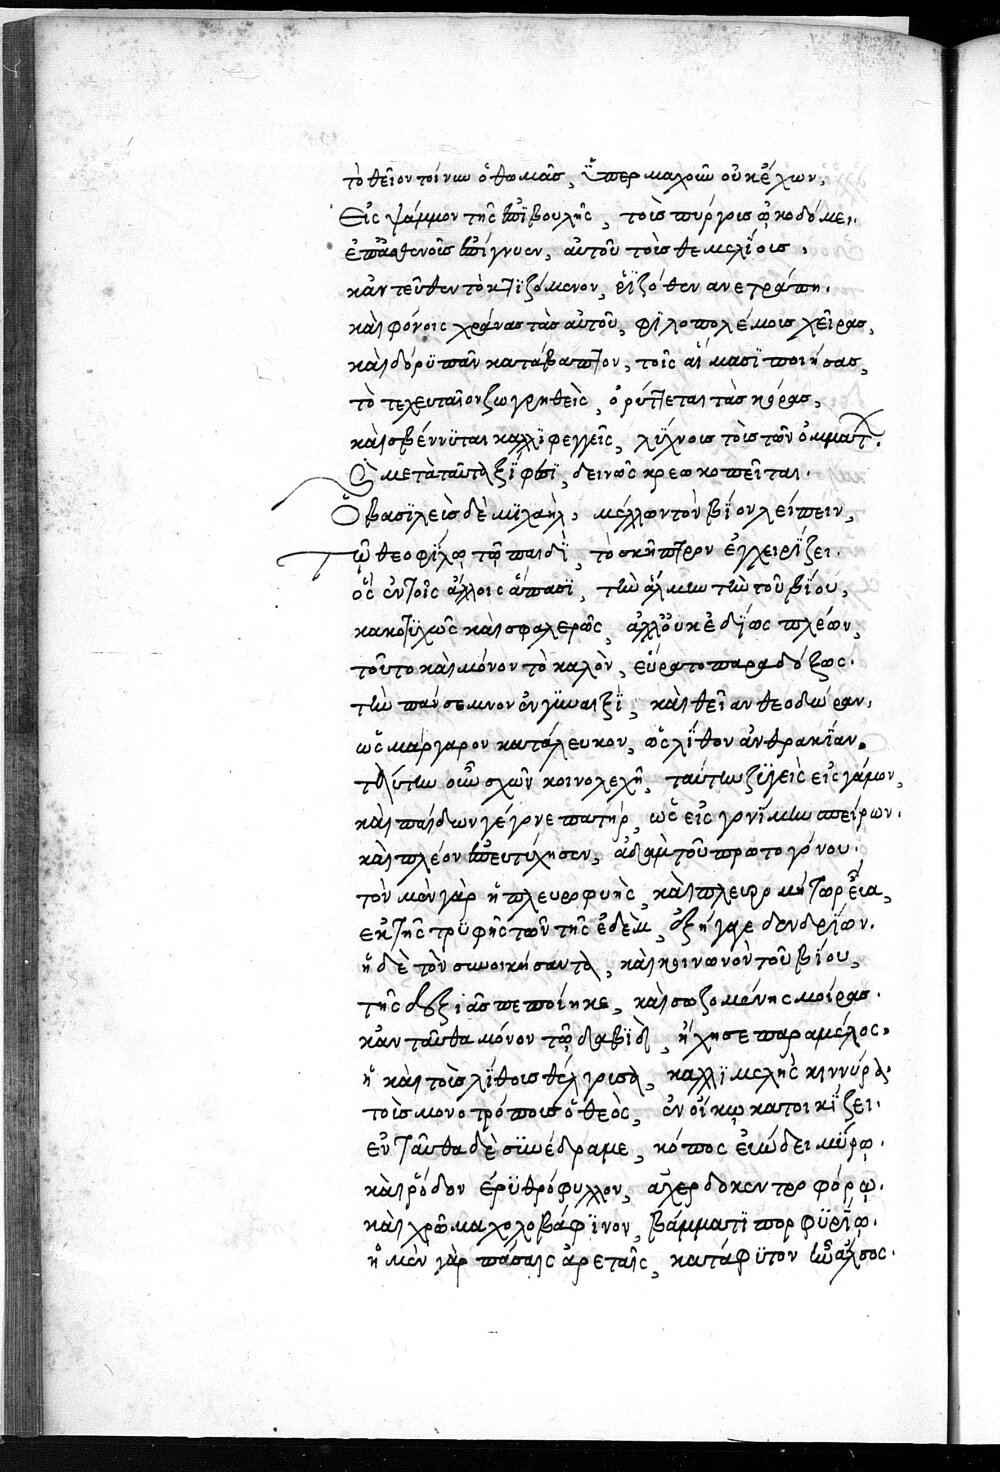 τὸ θεῖον τοίνυν ὁ θωμᾶς, ὑπερμαχοῦν οὐκ ἔχων,
εἰς ψάμμον τῆς ἐπϊβουλῆς, τοὺς πύργους ᾠκοδόμει,
ἐπ ἀσθενοῖς ἐπήγνυεν, αὐτοῦ τοῖς θεμελίοις.
κἀντεῦθεν τὸ κτϊζόμενον, ῥϊζόθεν ανετράπη.
καὶ φόνοις χράνας τὰς αὐτοῦ, φϊλοπολέμους χεῖρας,
καὶ δόρϋ πᾶν κατάβαπτον, τοῖς αἵμασϊ ποιήσας,
τὸ τελευταῖον ζωγρηθεὶς, ὀρύττεται τὰς κόρας,
καὶ σβέννϋται καλλϊφεγγεῖς, λϋχνους τοὺς τῶν ὀμμάτων.
καὶ μετὰ ταῦτα ξΐφεσϊ, δεινῶς κρεωκοπεῖται.
Ὁ βασϊλεὺς δὲ μϊχαὴλ, μέλλων τὸν βΐον λείπειν,
τῷ θεοφΐλῳ τῷ παιδῒ, τὸ σκῆπτρον ἐγχειρΐζει.
ὃς ἐν τοῖς ἄλλοις ἅπασϊ, τὴν ἅλμην τὴν τοῦ βΐου,
κακοτϋχῶς καὶ σφαλερῶς, ἀλλ οὐκ εὐδΐως πλέων,
τοῦτο καὶ μόνον τὸ καλὸν, εὕρατο παραδόξως.
τὴν πάνσεμνον ἐν γϋναιξῒ, καὶ θείαν θεοδώραν,
ὡς μάργαρον κατάλευκον, ὡς λΐθον ἀνθρακΐαν.
ταύτην οὖν σχὼν κοινολεχῆ, ταύτῃ ζϋγεὶς εἰς γάμον,
καὶ παίδων γέγονε πατὴρ, ὡς εἰς γονῒμην σπείρων.
καὶ πλέον ἐπευτύχησεν, ἀδὰμ τοῦ πρωτογόνου.
τὸν μὲν γὰρ ἡ πλευροφυὴς, καὶ πλευρομήτωρ εὔα,
ἐκ τῆς τρϋφῆς τῶν τῆς ἐδὲμ, ἐξήγαγε δενδρΐων.
ἡ δὲ τὸν συνοικήσαντα, καὶ κοινωνὸν τοῦ βΐου,
τῆς δεξιᾶς πεποίηκε, καὶ σωζομένης μοίρας.
κἀνταῦθα μόνον τῷ δαβῒδ, ἤχησε παραμέλος.
ἡ καὶ τοὺς λΐθους θέλγουσα, καλλϊμελὴς κιννύρα.
τοὺς μονοτρόπους ὁ θεὸς, ἐν οἴκῳ κατοικΐζει.
ἐνταῦθα δὲ σϋνέδραμε, κόπρος εὐώδει μΰρῳ.
καὶ ῥόδον ἐρϋθρόφυλλον, ἀχέρδῳ κεντροφόρῳ.
καὶ χρῶμα χολοβάφϊνον, βάμματϊ πορφϋρΐῳ.
ἡ μὲν γὰρ πάσαις ἀρεταῖς, κατάφϋτον ἦν ἄλσος.